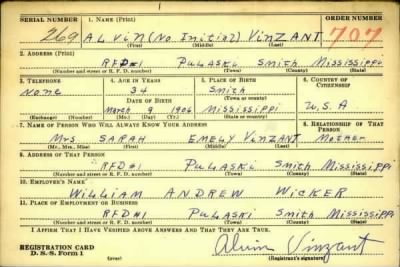 SERIAL NUMBER 1. NAME (Print) ORDER NUMBER
269 ALVIN (No Initial) VINZANT 707
(First) (Middle) (Last)
2. ADDRESS (Print)
RFD#1 PULASKI SMITH MISSISSIPPI
(Number and street or R. F. D. number) (Town) (County) (State)
3. TELEPHONE 4. AGE IN YEARS 5. PLACE OF BIRTH 6. COUNTRY OF CITIZENSHIP
NONE 34 SMITH
DATE OF BIRTH (Town or county)
March 9 1906 MISSISSIPPI U.S.A
(Exchange) (Number) (Mo.) (Day) (Yr.) (State or country)
7. NAME OF PERSON WHO WILL ALWAYS KNOW YOUR ADDRESS 8. RELATIONSHIP OF THAT PERSON
MRS SARAH EMELY VINZANT MOTHER
(Mr., Mrs., Miss) (First) (Middle) (Last)
9. ADDRESS OF THAT PERSON
RFD#1 PULASKI SMITH MISSISSIPPI
(Number and street or R. F. D. number) (Town) (County) (State)
10. EMPLOYER'S NAME
WILLIAM ANDREW WICKER
11. PLACE OF EMPLOYMENT OR BUSINESS
RFD#1 PULASKI SMITH MISSISSIPPI
(Number and street or R. F. D. number) (Town) (County) (State)
I AFFIRM THAT I HAVE VERIFIED ABOVE ANSWERS AND THAT THEY ARE TRUE.
REGISTRATION CARD
D. S. S. Form 1 Alvin Vinzant
(over) (Registrant's signature)